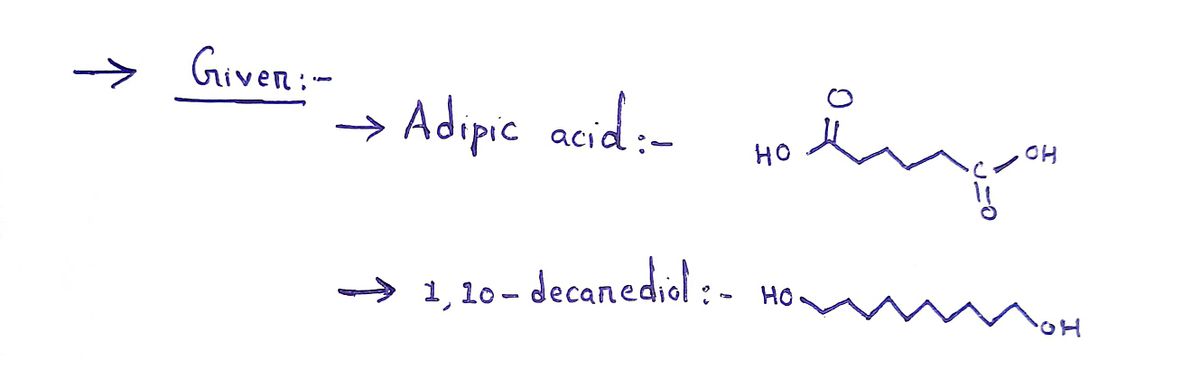 → Given:-
→ Adipic acid:- HO O C OH O
→ 1,10-decanediol:- HO OH